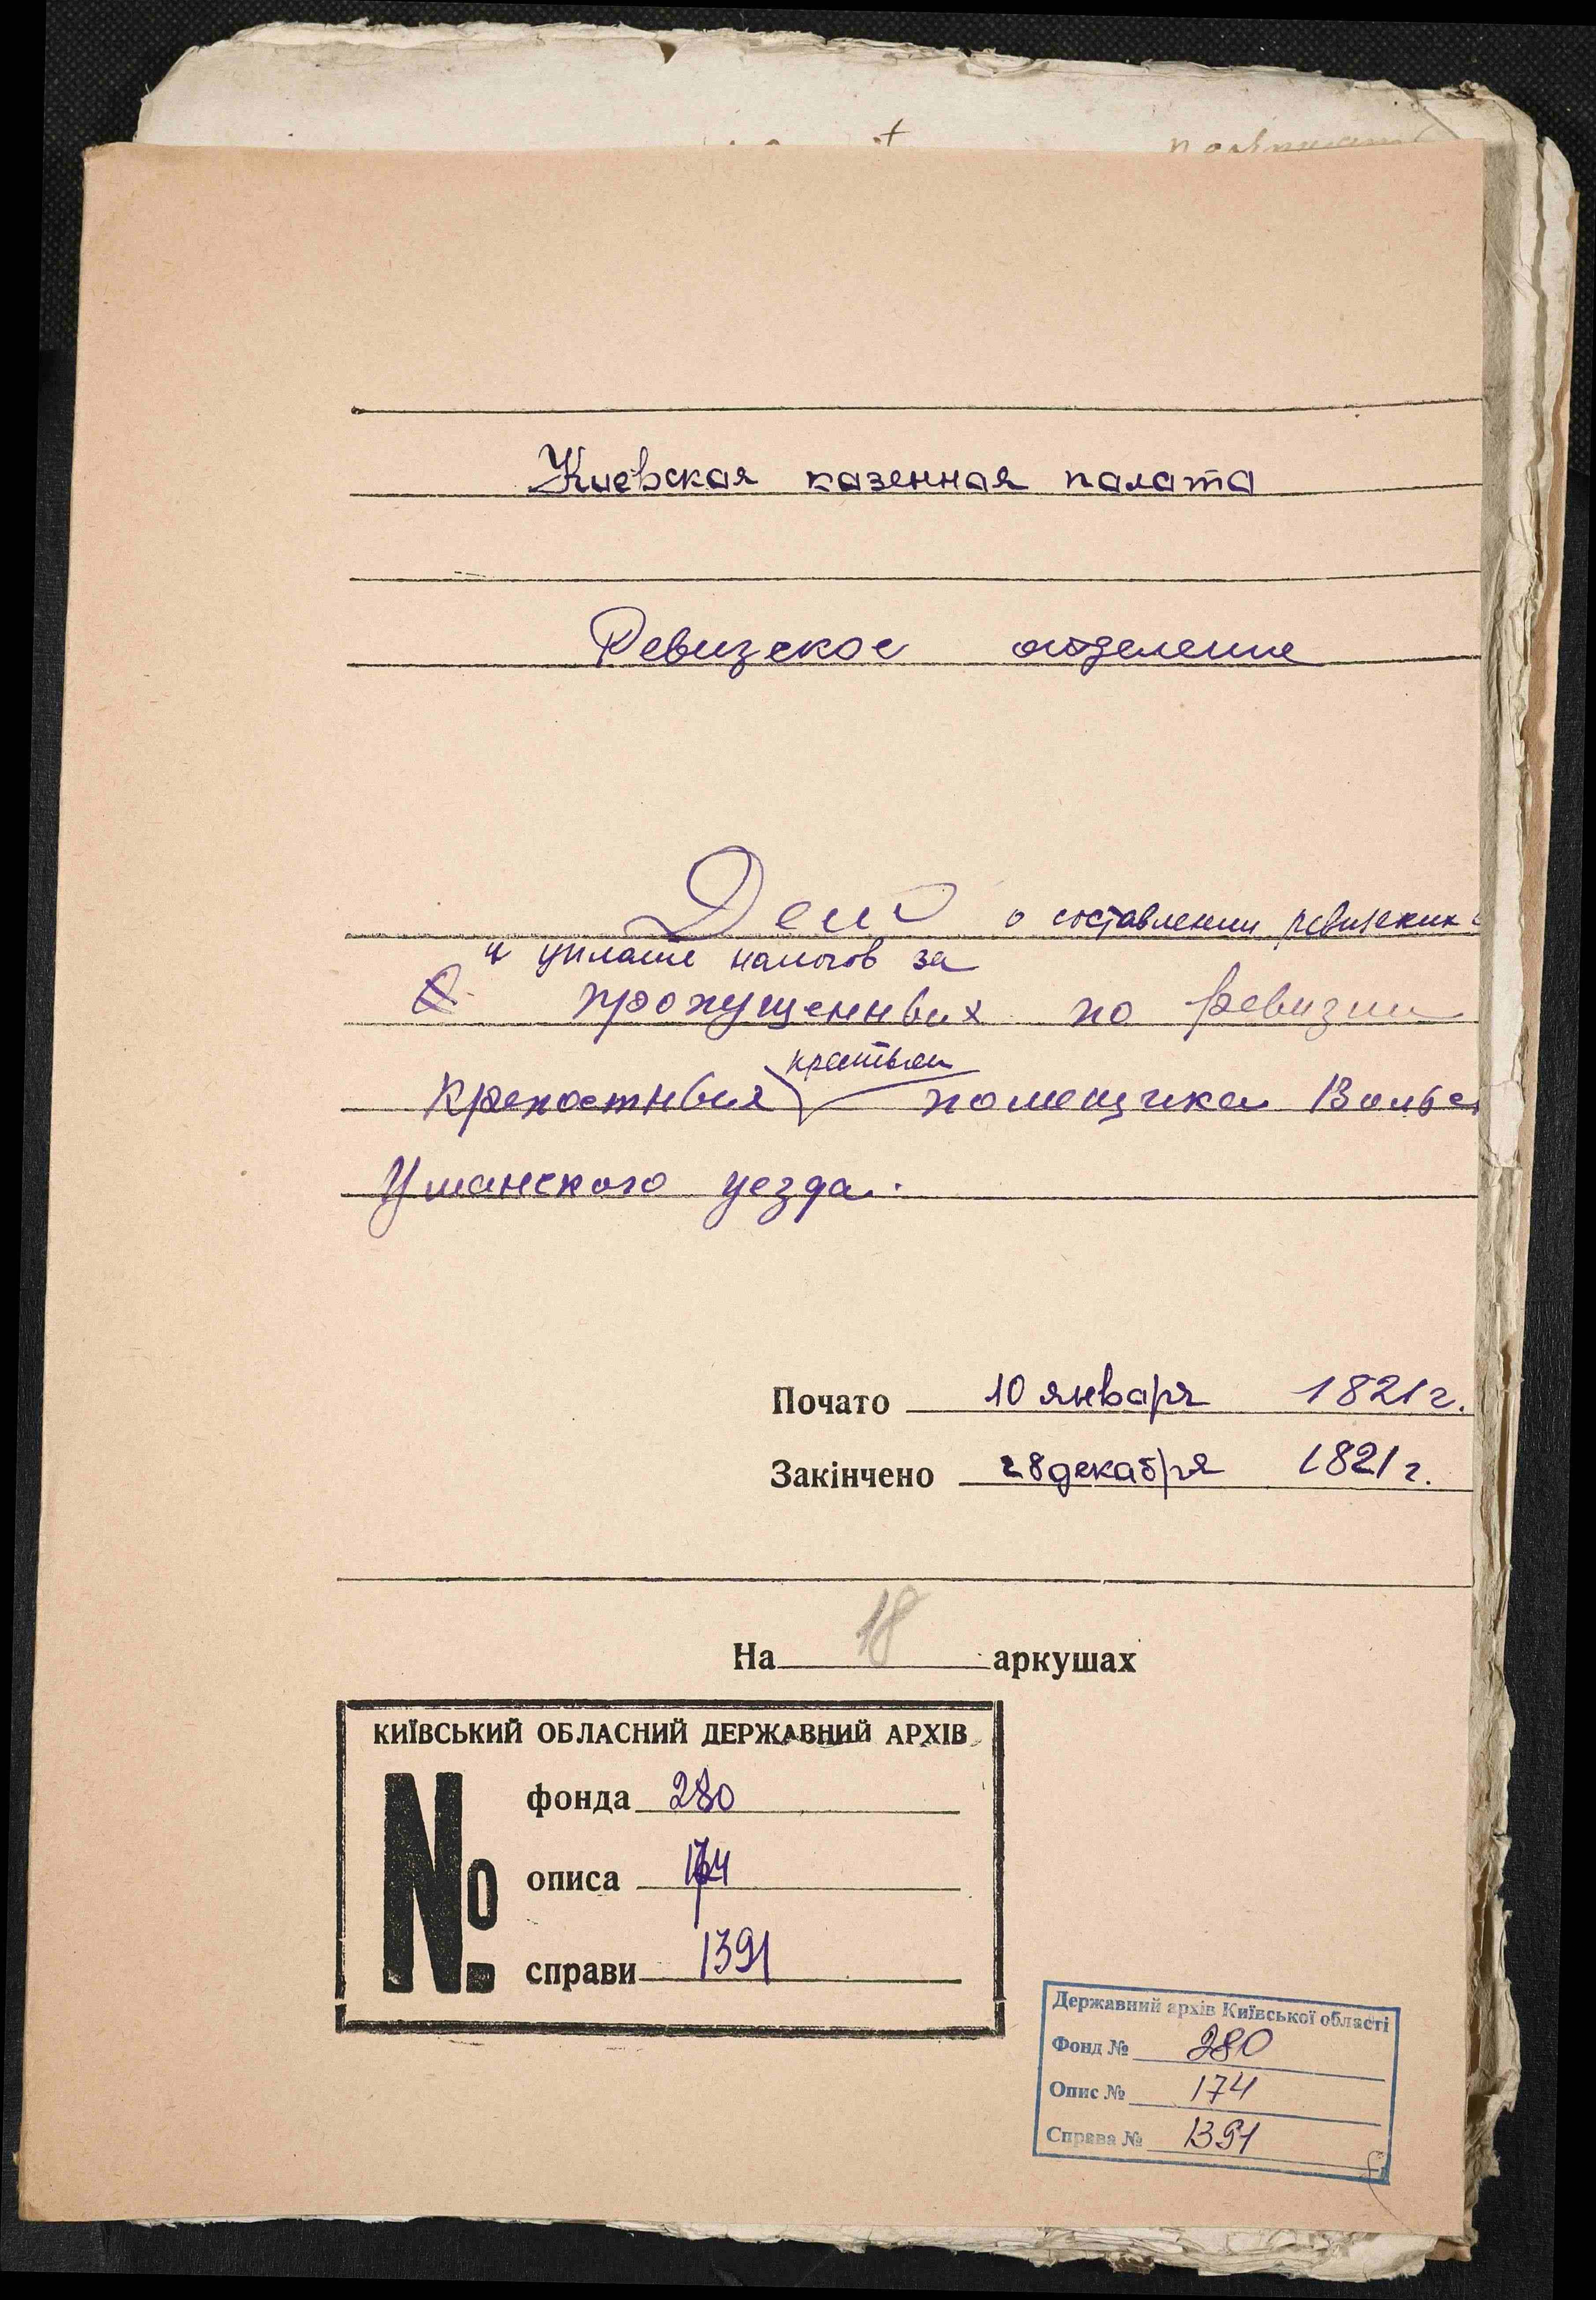 Киевская казенная палата
Ревизское отделение
Дело о составлении ревизских
и уплате налогов за
пропущенных по ревизии
крестьян
крепостных помещика
Уманского уезда.
Почато 10 января 1821 г.
Закінчено 28 декабря 1821 г.
На 18 аркушах
КИЇВСЬКИЙ ОБЛАСНИЙ ДЕРЖАВНИЙ АРХІВ
№ фонда 280
описа 174
справи 1391
Державний архів Київської області
Фонд № 280
Опис № 174
Справа № 1391